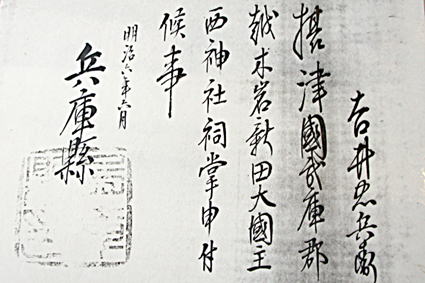 吉井忠兵衛
摂津國武庫郡
越木岩新田大國主
西神社祠掌申付
候事
明治六年六月
兵庫縣